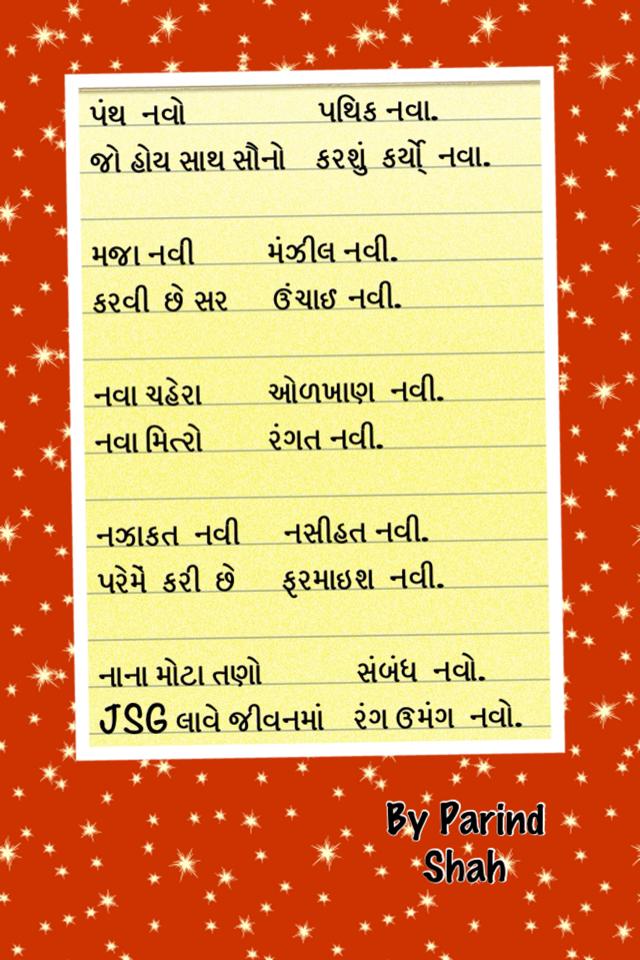 પંથ નવો પથિક નવા.
જો હોય સાથ સૌનો કરશું કર્યો્ નવા.
મજા નવી મંઝીલ નવી.
કરવી છે સર ઉંચાઈ નવી.
નવા ચહેરા ઓળખાણ નવી.
નવા મિત્રો રંગત નવી.
નઝાકત નવી નસીહત નવી.
પરેમેં કરી છે ફરમાઇશ નવી.
નાના મોટા તણો સંબંધ નવો.
JSG લાવે જીવનમાં રંગ ઉમંગ નવો.
By Parind
Shah